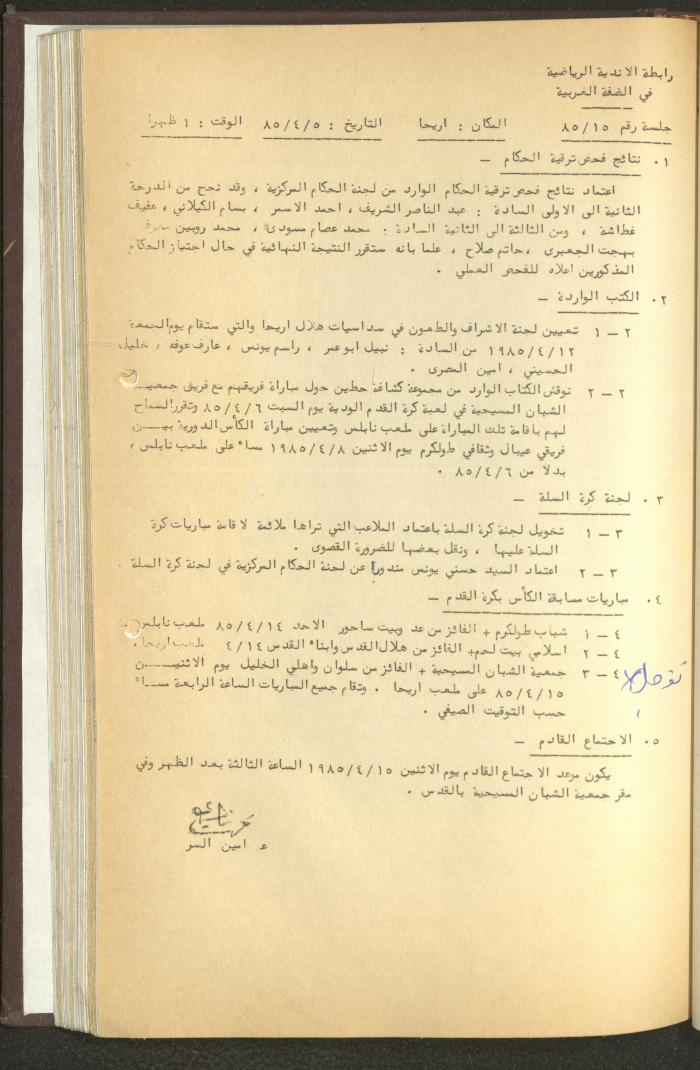 رابطة الاندية الرياضية
في الضفة الغربية
جلسة رقم ٨٥/١٥ المكان : اريحا التاريخ : ٨٥/٤/٥ الوقت : ١ ظهرا
١. نتائج فحص ترقية الحكام —
اعتماد نتائج فحص ترقية الحكام الوارد من لجنة الحكام المركزية ، وقد نجح من الدرجة
الثانية الى الاولى السادة : عبد الناصر الشريف ، احمد الاسمر ، بسام الكيلاني ، عفيف
غطاشة ، ومن الثالثة الى الثانية السادة : محمد عصام مسودى ، محمد روبين
بهجت الجعبرى ، حاتم صلاح ، علما بانه ستقرر النتيجة النهائية في حال اجتياز الحكام
المذكورين اعلاه للفحص العملي .
٢. الكتب الواردة —
٢ — ١ تعيين لجنة الاشراف والطعون في سداسيات هلال اريحا والتي ستقام يوم الجمعة
١٩٨٥/٤/١٢ من السادة : نبيل ابو عمر ، راسم يونس ، عارف عوفه ، خليل
الحسيني ، امين المصرى .
٢ — ٢ نوقش الكتاب الوارد من مجموعة كشافة حطين حول مباراة فريقهم مع فريق جمعيـــة
الشبان المسيحية في لعبة كرة القدم الودية يوم السبت ٨٥/٤/٦ وتقرر السماح
لهم باقامة تلك المباراة على ملعب نابلس وتعيين مباراة الكأس الدورية بيـــن
فريقي عيبال وثقافي طولكرم يوم الاثنين ١٩٨٥/٤/٨ مساء على ملعب نابلس ،
بدلا من ٨٥/٤/٦ .
٣. لجنة كرة السلة —
٣ — ١ تخويل لجنة كرة السلة باعتماد الملاعب التي تراها ملائمة لاقامة مباريات كرة
السلة عليها ، ونقل بعضها للضرورة القصوى .
٣ — ٢ اعتماد السيد حسني يونس مندوبا عن لجنة الحكام المركزية في لجنة كرة السلة .
٤. مباريات مسابقة الكأس بكرة القدم —
٤ — ١ شباب طولكرم + الفائز من عد وبيت ساحور الاحد ٨٥/٤/١٤ ملعب نابلس
٤ — ٢ اسلامي بيت لحم + الفائز من هلال القدس وابناء القدس ٤/١٤ ملعب اريحا .
٤ — ٣ جمعية الشبان المسيحية + الفائز من سلوان واهلي الخليل يوم الاثنيـــن
٨٥/٤/١٥ على ملعب اريحا . وتقام جميع المباريات الساعة الرابعة مســاء
حسب التوقيت الصيفي .
٥. الاجتماع القادم —
يكون موعد الاجتماع القادم يوم الاثنين ١٩٨٥/٤/١٥ الساعة الثالثة بعد الظهر وفي
مقر جمعية الشبان المسيحية بالقدس .
ع امين السر